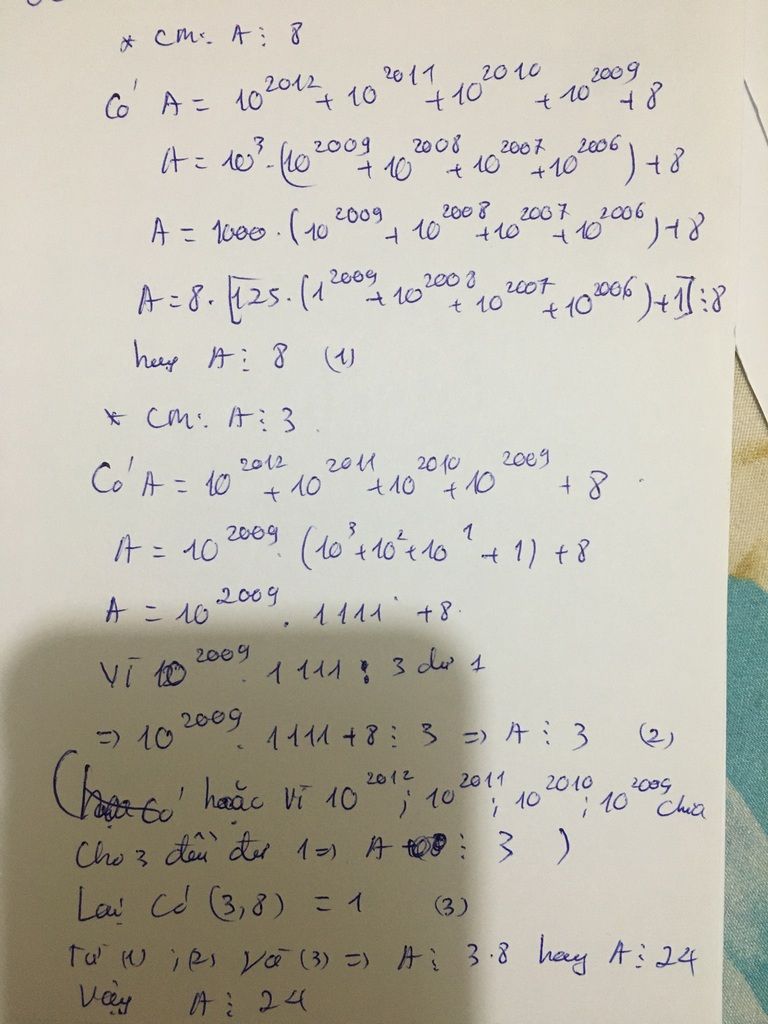 * CM: A ⋮ 8
Có A = 10^2012 + 10^2011 + 10^2010 + 10^2009 + 8
A = 10^3 . (10^2009 + 10^2008 + 10^2007 + 10^2006) + 8
A = 1000 . (10^2009 + 10^2008 + 10^2007 + 10^2006) + 8
A = 8 . [125 . (1^2009 + 10^2008 + 10^2007 + 10^2006) + 1] ⋮ 8
hay A ⋮ 8 (1)
* CM: A ⋮ 3
Có A = 10^2012 + 10^2011 + 10^2010 + 10^2009 + 8
A = 10^2009 . (10^3 + 10^2 + 10^1 + 1) + 8
A = 10^2009 . 1111 + 8
Vì 10^2009 . 1111 : 3 dư 1
=> 10^2009 . 1111 + 8 ⋮ 3 => A ⋮ 3 (2)
( hoặc vì 10^2012 ; 10^2011 ; 10^2010 ; 10^2009 chia
cho 3 đều dư 1 => A ⋮ 3 )
Lại có (3,8) = 1 (3)
Từ (1) ; (2) và (3) => A ⋮ 3.8 hay A ⋮ 24
Vậy A ⋮ 24